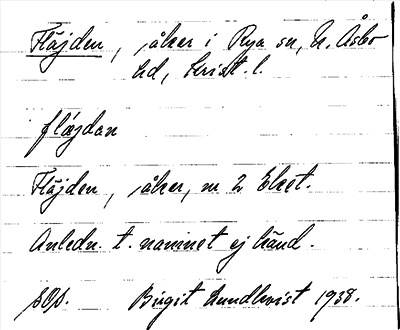 Fläjden, åker i Rya sn, N. Åsbo
hd, Krist. l.
fläjdan
Fläjden, åker, nr 2 Eket.
Anledn. t. namnet ej känd.
Birgit Lundkvist 1938.